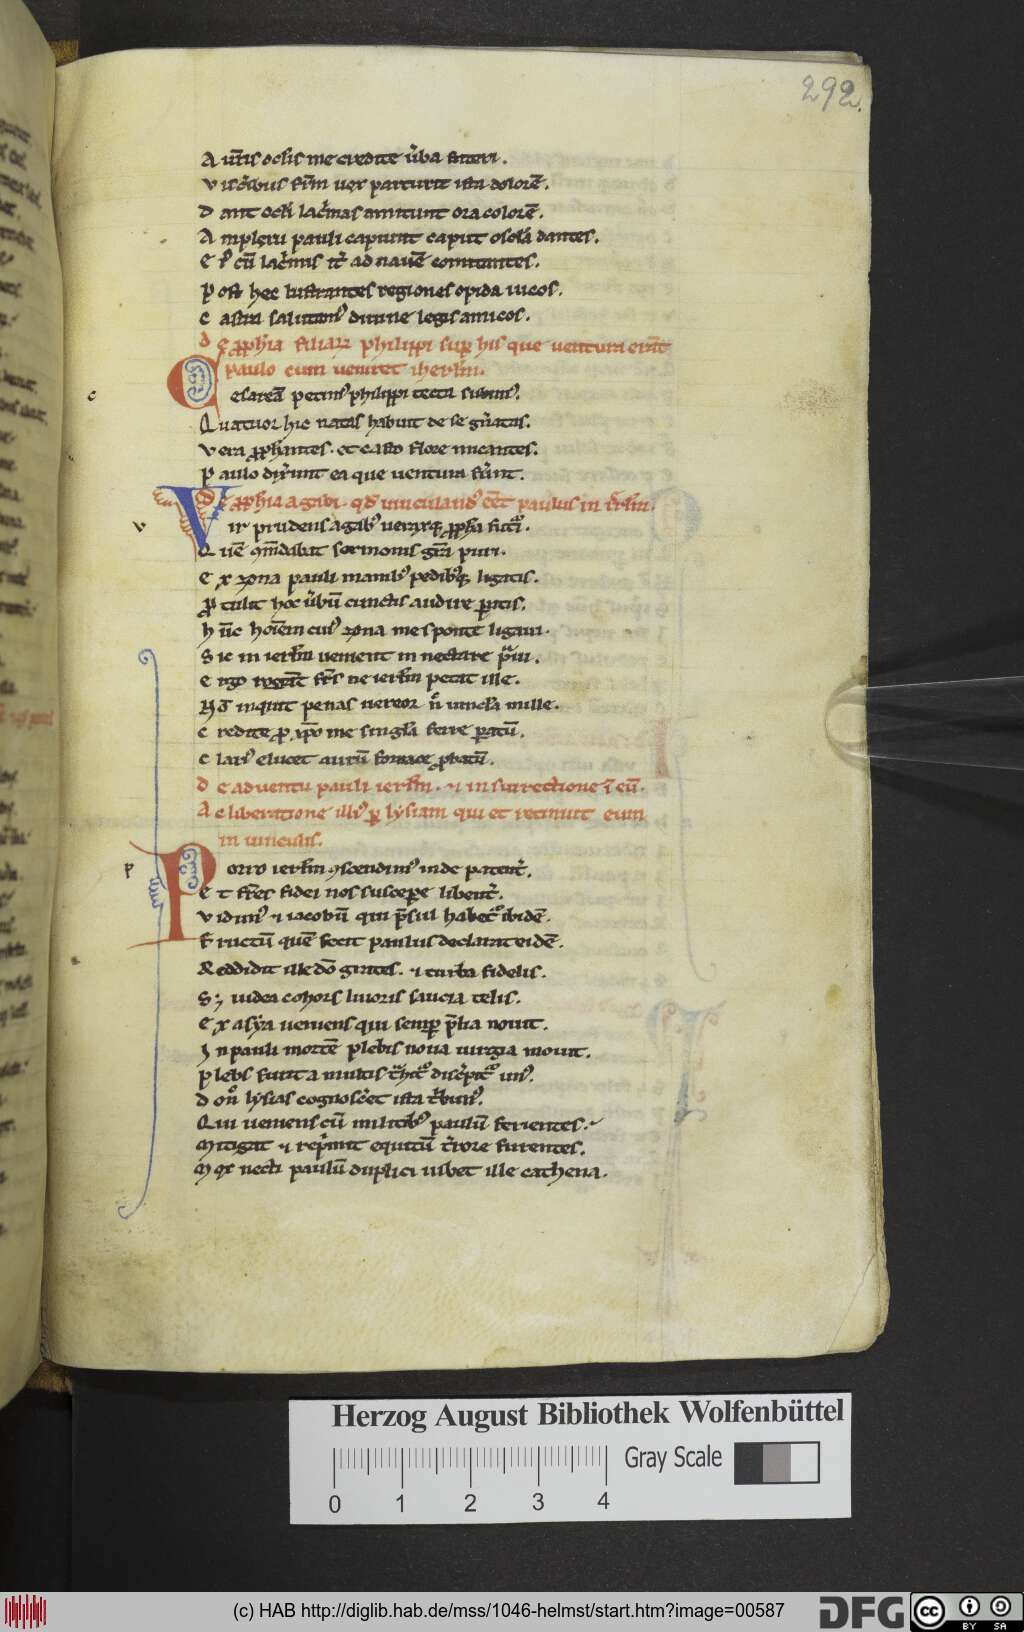 292.
A ur̄is oc̄lis me credite ūba fateri.
V iscib; 
D ant oc̄li lac̄mas amitunt ora colorē.
A mplexu pauli capiunt caput oscl̄a dantes.
E cū lac̄mis ad nauē comitantes.
P ost hec lustrantes regiones opida uicos.
C astra salutam᷒ diuine legis amicos.
D e ꝓph̄ia filiaꝝ philippi suꝑ his que uentura erāt
paulo cum ueniret iherl̄m.
C esareā petim᷒ philippi tecta subim᷒.
c
Q uatuor hic natas habuit de se gn̄atas.
V era ꝓph̄antes. et casto flore micantes.
P aulo dix̄unt ea que uentura fūnt.
D e ꝓph̄ia agabi. qd̄ uinculand᷒ eēt paulus in ierl̄m.
V ir prudens agab᷒ ueraxq; ꝓph̄a
v
Q uē gm̄dabat sermonis gr̄a puri.
E x zona pauli manib᷒ pedibq; ligatis.
P tulit hoc ūbū cunctis audire ꝑitis.
h ūc hoīem cui᷒ zona me sponte ligaui.
S ic in ierl̄m uenient in nectare
E rgo rogāt fr̄s ne ierl̄m petat ille.
inquit penas uereor n̄ uincl̄a mille.
C redite ꝓ xp̄o me singl̄a ferre ꝑatū.
C lari᷒ elucet aurū fornace ꝓbatū.
D e aduentu pauli ierl̄m. ⁊ insurrectione ī eū.
A c liberatione illi᷒ ꝑ lysiam qui et retinuit eum
in uinculis.
P orro ierl̄m ꝯscendim᷒ inde patent̄.
p
E t fr̄es fidei nos suscepe libent̄.
V idim᷒ ⁊ iacobū qui p̄sul habet᷒ ibidē.
F ructū quē fecit paulus declarat eidē.
R eddidit ille dō grates. ⁊ turba fidelis.
S; iudea cohors liuoris saucia telis.
E x asya ueniens qui semꝑ p̄lia nouit.
I n pauli mortē plebis noua iurgia mouit.
P lebs furit a multis
D on̄ lysias cognoscēt ista t̄bun᷒.
Q ui ueniens cū militib᷒ paulū ferientes.
M itigat ⁊ rep̄mit equitū t̄rore furentes.
M ox necti paulū duplici iubet ille cathena.
Herzog August Bibliothek Wolfenbüttel
Gray Scale
0 1 2 3 4
(c) HAB http://diglib.hab.de/mss/1046-helmst/start.htm?image=00587
DFG
cc
BY SA